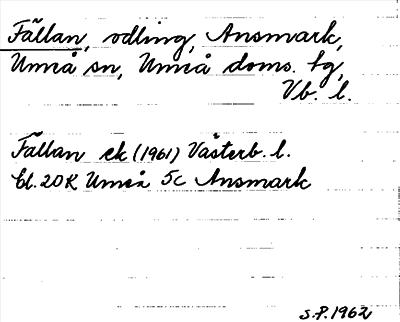 Fällan, odling, Ansmark,
Umeå sn, Umeå doms. tg,
Vb. l.
Fällan ek (1961) Västerb. l.
bl. 20K Umeå 5c Ansmark
S.P. 1962